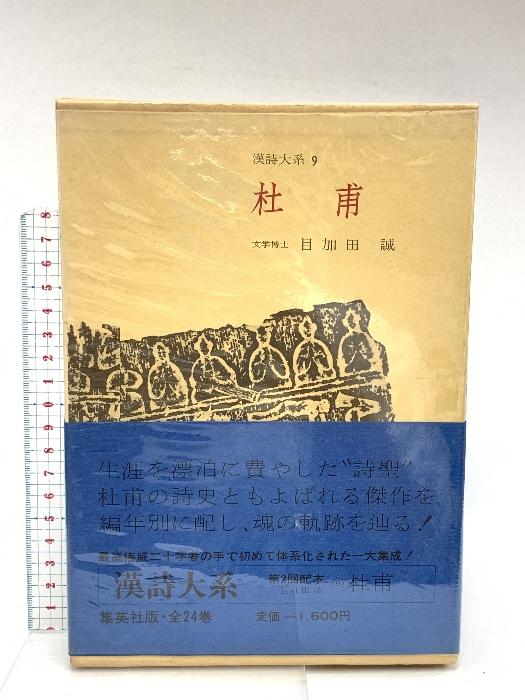 漢詩大系 9
杜甫
文学博士 目加田 誠
生涯を漂泊に費やした“詩聖”
杜甫の詩史ともよばれる傑作を
編年別に配し、魂の軌跡を辿る!
最高権威二十学者の手で初めて体系化された一大集成!
漢詩大系 第2回配本 目加田誠 (9) 杜甫
集英社版・全24巻 定価—1,600円